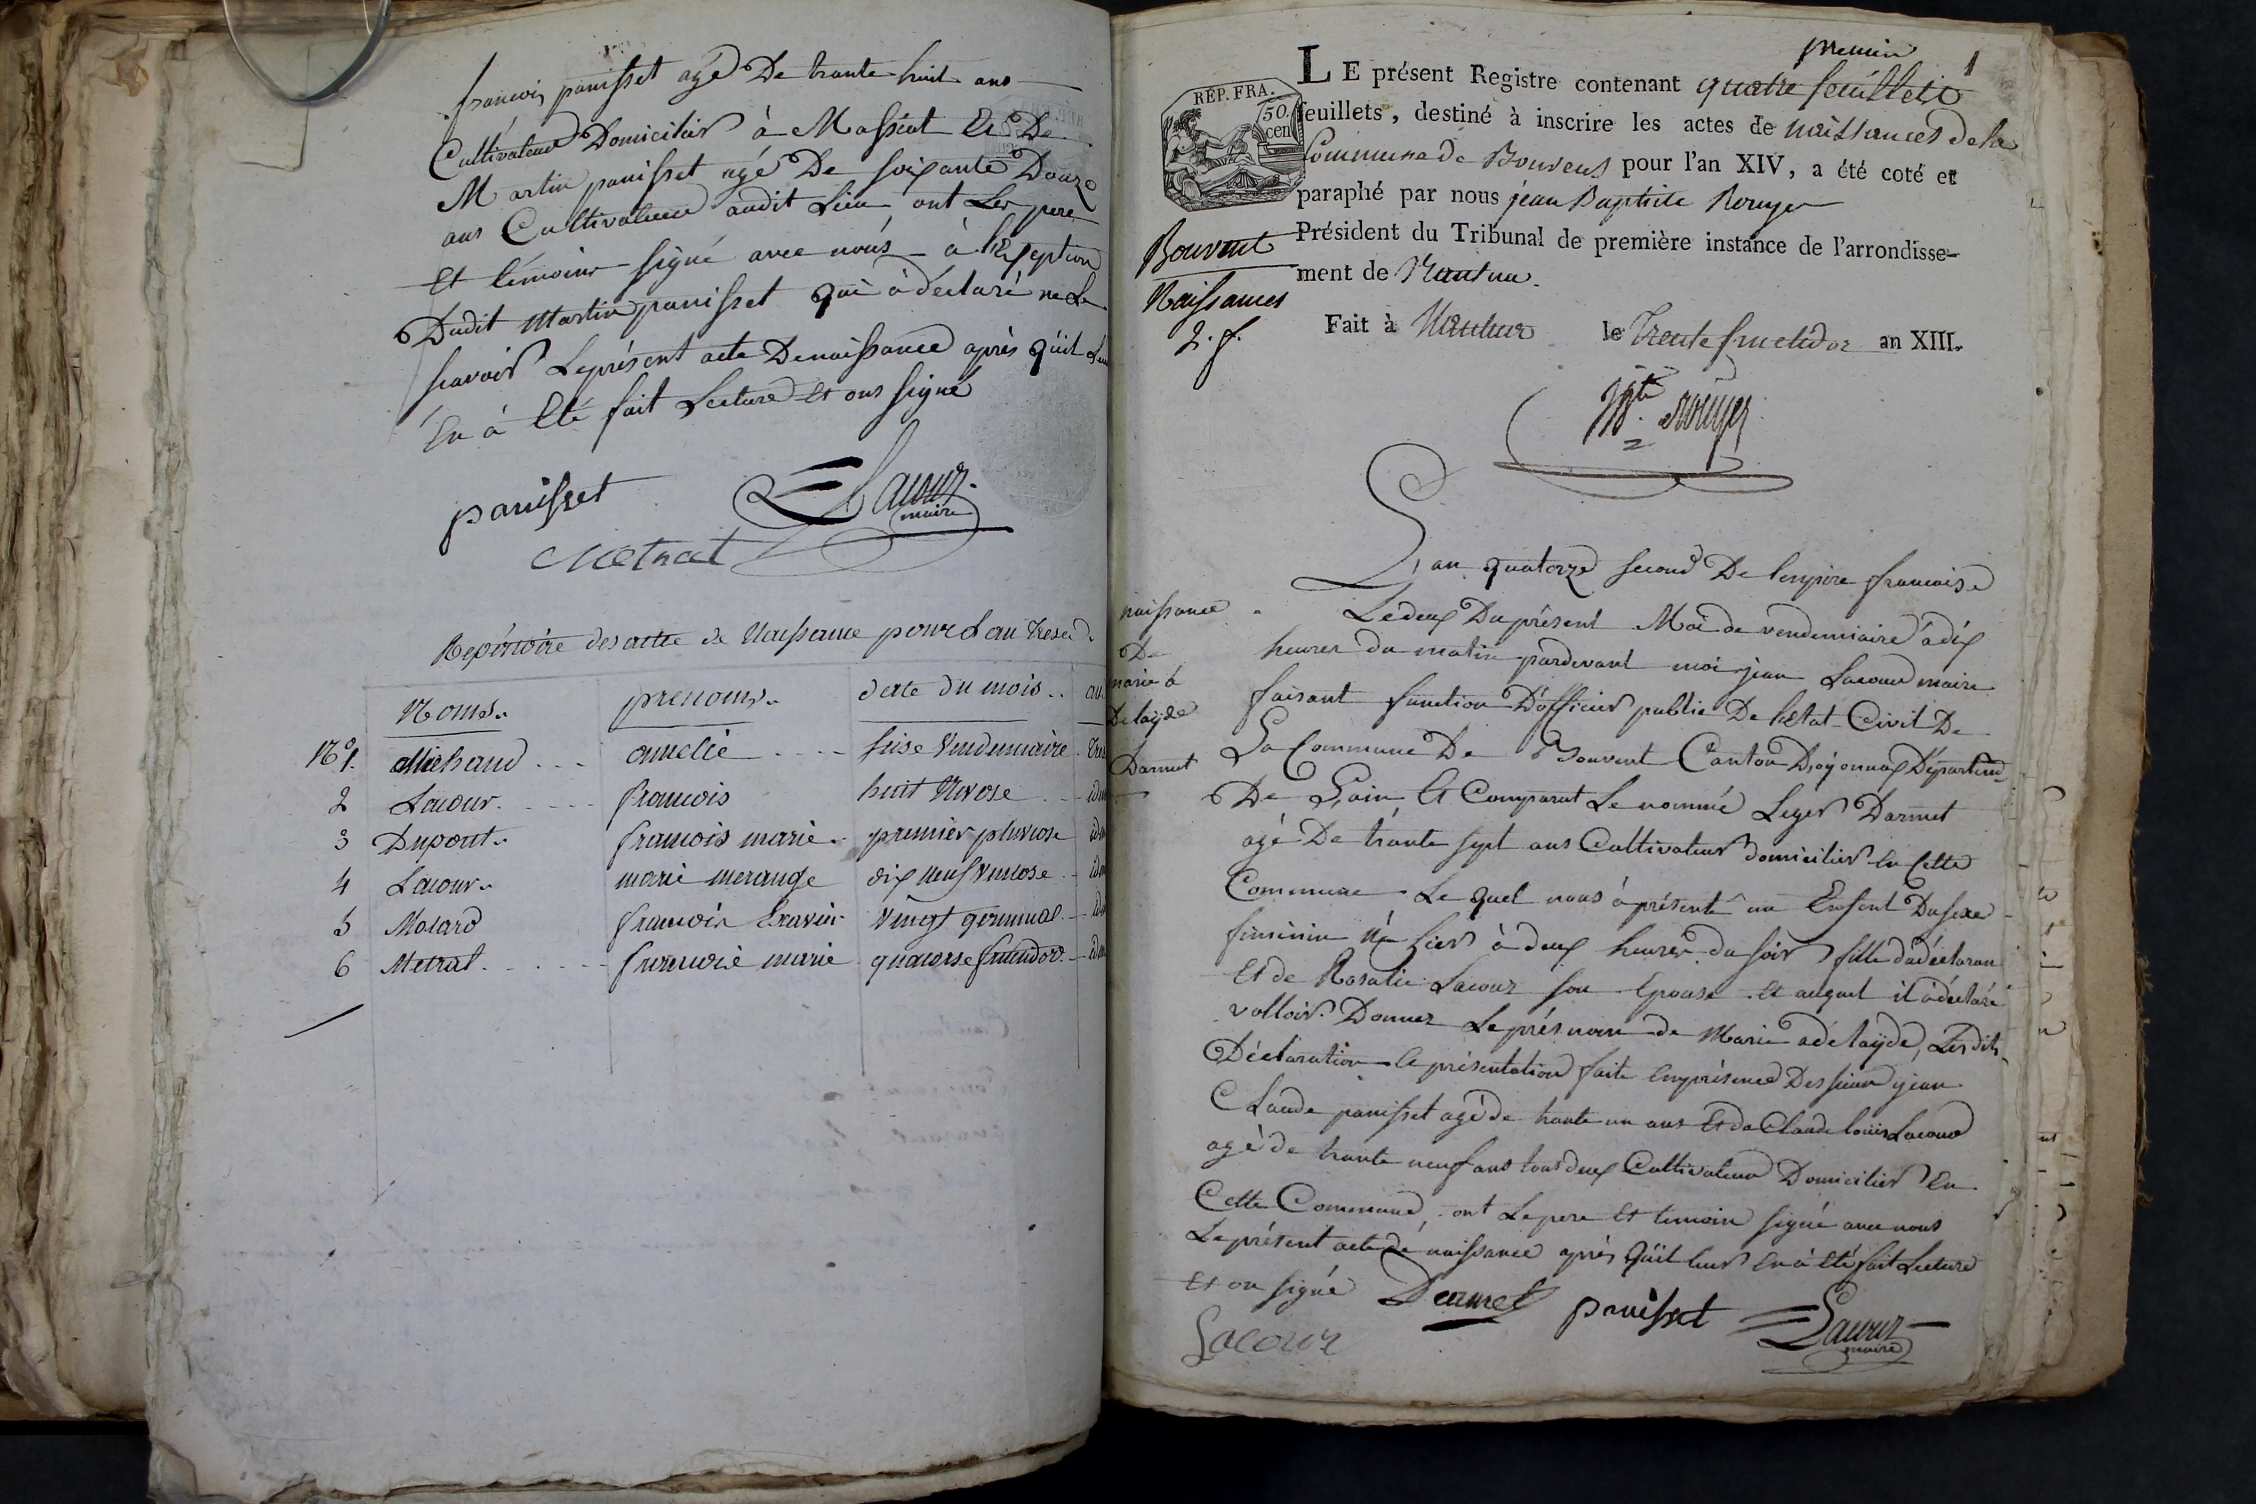 françois panisset agé De trante huit ans
Cultivateur Domicilier à Massiat Et De
Martin panisset agé De soixante Douze
ans Cultivateur audit Lieu ont Les pere
Et témoins signé avec nous à l'Exseption
Dudit Martin panisset qui à déclaré ne le
scavoir Le présent acte De naissance après qu'il Leur
En à Eté fait Lecture et ons signé
panisset
Lacour
maire
Metrat
Repértoire des actte de Naissance pour L'an Treize
Noms
prenoms
date du mois
an
No 1. Michaud amelie seise Vendemiaire treize
2 Lacour françois huit Nivose idem
3 Dupont françois marie premier pluviose idem
4 Lacour marie merange dix neuf Ventose idem
5 Molard françois Exavier Vingt germinal idem
6 Metrat françoise marie quatorse fructidor idem
premier
1
LE présent Registre contenant quatre feuillets
feuillets, destiné à inscrire les actes de naissances de la
Commune de Bouvent pour l'an XIV, a été coté et
paraphé par nous jean Baptiste Rouyer
Président du Tribunal de première instance de l'arrondisse-
ment de Nantua.
Fait à Nantua le Trente fructidor an XIII.
REP. FRA.
50.
cen
Bouvent
Naissances
2. f.
Jn Bte Rouyer
L'an quatorze second De l'empire française
Le deux Du présent Moi de vendemiaire à dix
heures du matin pardevant moi jean Lacour maire
faisant function D'officier public De l'Etat-Civil De
La Commune De Bouvent Canton D'oyonnax Départemt
De L'ain Et Comparut Le nommé Leger Darmet
agé De trante sept ans Cultivateur domicilier En Cette
Commune Le quel nous à présenté un Enfent Du sexe
féminin né hier à deux heures du soir fille du déclarant
Et de Rosalie Lacour son Epouse et auquel il à déclaré
volloir Donner Le prénom de Marie adélaÿde, Les dits
Déclaration Et présentation faite En présence Des sieur jean
Claude panisset agé de trante un ans Et de Claude louis Lacour
agé de trante neuf ans tous deux Cultivateur Domicilier En
Cette Commune, ont Le pere Et temoins signé avec nous
Le présent acte de naissance après qu'il leur En à Eté fait Lecture
Et on signé Darmet panisset Lacour
maire
Lacour
naissance
De
marie a
Delaÿde
Darmet